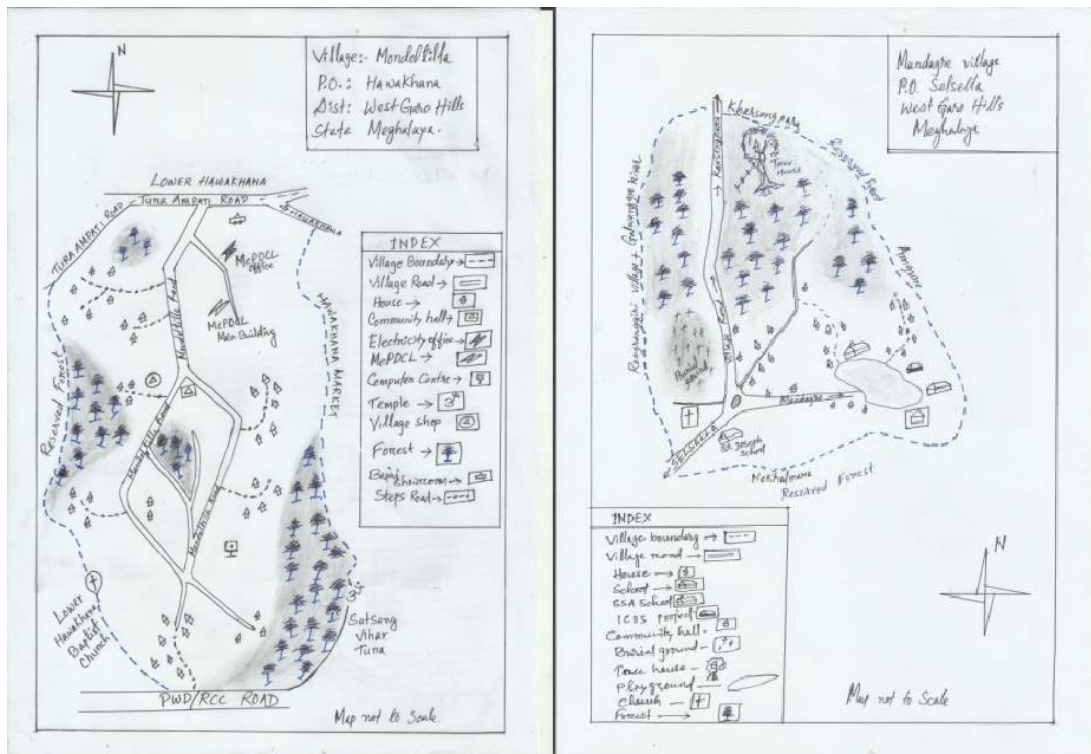 N
Village:- Mondoltilla
P.O.: Hawakhana
Dist: West Garo Hills
State Meghalaya.
LOWER HAWAKHANA
TURA AMPATI ROAD
TURA AMPATI ROAD
HAWAKHANA
MePDCL
office
MePDCL
Main Building
Mondoltilla Road
Reserved Forest
HAWAKHANA MARKET
Mondoltilla Road
Mondoltilla Road
Lower
Hawakhana
Baptist
Church
Satsang
Vihar
Tura
PWD/RCC ROAD
Map not to Scale.
INDEX
Village Boundary→
Village Road→
House→
Community hall→
Electricity office→
MePDCL→
Computer Centre→
Temple→
Village shop
Forest→
Bajaj
Showroom→
Steps Road→
Mandagre village
P.O. Selsella
West Garo Hills
Meghalaya
Reserved Forest
Tree
House
Village Road
Burial
ground
Mandagre
SELSELLA
St. Joseph
School
Reserved Forest
INDEX
Village boundary→
Village road→
House→
School→
SSA School
ICDS project
Community hall-
Burial ground-
Tree house-
Playground
Church-
Forest→
N
Map not to Scale